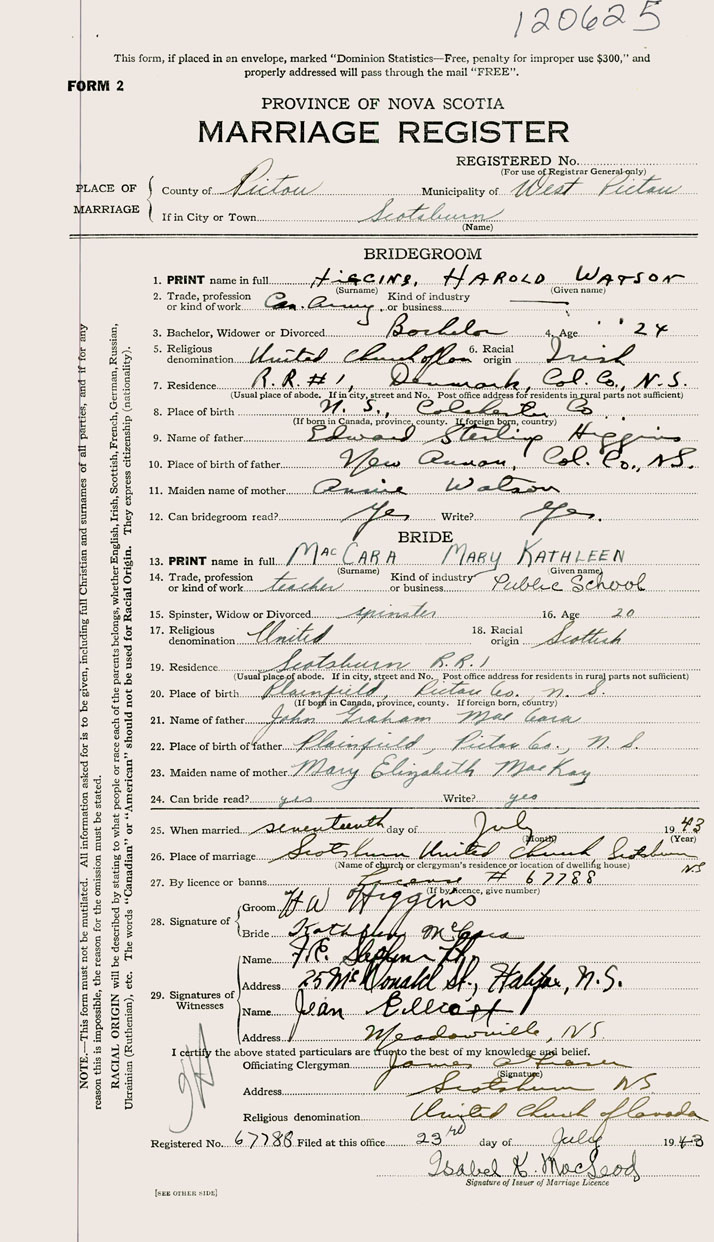 120625
This form, if placed in an envelope, marked "Dominion Statistics—Free, penalty for improper use $300," and
properly addressed will pass through the mail "FREE".
FORM 2
PROVINCE OF NOVA SCOTIA
MARRIAGE REGISTER
REGISTERED No.
(For use of Registrar General only)
PLACE OF MARRIAGE
County of Pictou Municipality of West Pictou
If in City or Town Scotsburn
(Name)
BRIDEGROOM
1. PRINT name in full HIGGINS, HAROLD WATSON
(Surname) (Given name)
2. Trade, profession or kind of work Can. Army Kind of industry or business
3. Bachelor, Widower or Divorced Bachelor 4. Age 24
5. Religious denomination United Church of Can 6. Racial origin Irish
7. Residence R.R. #1, Denmark, Col. Co., N.S.
(Usual place of abode. If in city, street and No. Post office address for residents in rural parts not sufficient)
8. Place of birth N.S., Colchester Co
(If born in Canada, province, county. If foreign born, country)
9. Name of father Edward Sterling Higgins
10. Place of birth of father New Annan, Col. Co., N.S.
11. Maiden name of mother Annie Watson
12. Can bridegroom read? Yes Write? Yes.
BRIDE
13. PRINT name in full MacCARA MARY KATHLEEN
(Surname) (Given name)
14. Trade, profession or kind of work teacher Kind of industry or business Public School
15. Spinster, Widow or Divorced spinster 16. Age 20
17. Religious denomination United 18. Racial origin Scottish
19. Residence Scotsburn R.R.1
(Usual place of abode. If in city, street and No. Post office address for residents in rural parts not sufficient)
20. Place of birth Plainfield, Pictou Co. N.S.
(If born in Canada, province, county. If foreign born, country)
21. Name of father John Graham MacCara
22. Place of birth of father Plainfield, Pictou Co., N.S.
23. Maiden name of mother Mary Elizabeth MacKay
24. Can bride read? yes Write? yes
25. When married seventeenth day of July 1943
(Month) (Year)
26. Place of marriage Scotsburn United Church, Scotsburn NS
(Name of church or clergyman's residence or location of dwelling house)
27. By licence or banns License # 67788
(If by licence, give number)
28. Signature of
Groom HW Higgins
Bride Kathleen McCara
29. Signatures of Witnesses
Name
Address 25 McDonald St., Halifax, N.S.
Name Jean
Address Meadowville, NS.
I certify the above stated particulars are true to the best of my knowledge and belief.
Officiating Clergyman James A Fraser
(Signature)
Address Scotsburn NS
Religious denomination United Church of Canada
Registered No. 67788 Filed at this office 23rd day of July 1943
Isabel K. MacLeod
Signature of Issuer of Marriage Licence
[SEE OTHER SIDE]
NOTE.—This form must not be mutilated. All information asked for is to be given, including full Christian and surnames of all parties, and if for any
reason this is impossible, the reason for the omission must be stated.
RACIAL ORIGIN will be described by stating to what people or race each of the parents belongs, whether English, Irish, Scottish, French, German, Russian,
Ukrainian (Ruthenian), etc. The words "Canadian" or "American" should not be used for Racial Origin. They express citizenship (nationality).